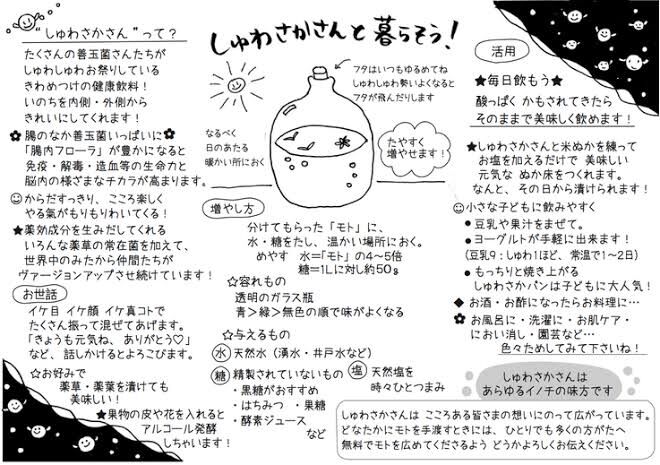 しゅわさかさんと暮らそう!
"しゅわさかさん"って?
たくさんの善玉菌さんたちが
しゅわしゅわお祭りしている
きわめつけの健康飲料!
いのちを内側・外側から
きれいにしてくれます!
腸のなか善玉菌いっぱいに
「腸内フローラ」が豊かになると
免疫・解毒・造血等の生命力と
脳内の様ざまなチカラが高まります。
からだすっきり、こころ楽しく
やる気がもりもりわいてくる!
★薬効成分を生みだしてくれる
いろんな薬草の常在菌を加えて、
世界中のみたから仲間たちが
ヴァージョンアップさせ続けています!
お世話
イケ目 イケ顔 イケ真コトで
たくさん振って混ぜてあげます。
「きょうも元気ね、ありがとう♡」
など、話しかけるとよろこびます。
☆お好みで
薬草・薬葉を漬けても
美味しい!
★果物の皮や花を入れると
アルコール発酵
しちゃいます!
フタはいつもゆるめてね
しゅわしゅわ勢いよくなると
フタが飛んだりします
なるべく
日のあたる
暖かい所におく
たやすく
増やせます!
増やし方
分けてもらった「モト」に、
水・糖をたし、温かい場所におく。
めやす 水=「モト」の4~5倍
糖=1Lに対し約50g
☆容れもの
透明のガラス瓶
青>緑>無色の順で味がよくなる
☆与えるもの
水 天然水(湧水・井戸水など)
糖 精製されていないもの
・黒糖がおすすめ
・はちみつ ・果糖
・酵素ジュース
など
塩 天然塩を
時々ひとつまみ
活用
★毎日飲もう★
酸っぱく かもされてきたら
そのままで美味しく飲めます!
★しゅわさかさんと米ぬかを練って
お塩を加えるだけで 美味しい
元気な ぬか床をつくれます。
なんと、その日から漬けられます!
小さな子どもに飲みやすく
●豆乳や果汁をまぜて。
●ヨーグルトが手軽に出来ます!
(豆乳9:しゅわ1ほど、常温で1~2日)
●もっちりと焼き上がる
しゅわさかパンは子どもに大人気!
◆お酒・お酢になったらお料理に…
お風呂に・洗濯に・お肌ケア・
におい消し・園芸など…
色々ためしてみて下さいね!
しゅわさかさんは
あらゆるイノチの味方です
しゅわさかさんは こころある皆さまの想いにのって広がっています。
どなたかにモトを手渡すときには、ひとりでも多くの方がたへ
無料でモトを広めてくださるよう どうかよろしくお伝えください。